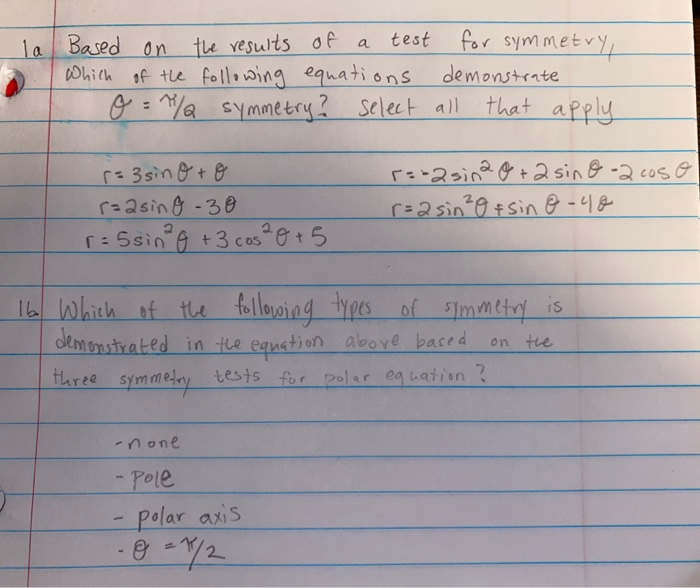 1a Based on the results of a test for symmetry,
which of the following equations demonstrate
θ = π/2 symmetry? Select all that apply
r = 3 sin θ + θ
r = 2 sin θ - 3θ
r = 5 sin² θ + 3 cos² θ + 5
r = -2 sin² θ + 2 sin θ - 2 cos θ
r = 2 sin² θ + sin θ - 4θ
1b Which of the following types of symmetry is
demonstrated in the equation above based on the
three symmetry tests for polar equation?
- none
- Pole
- polar axis
- θ = π/2